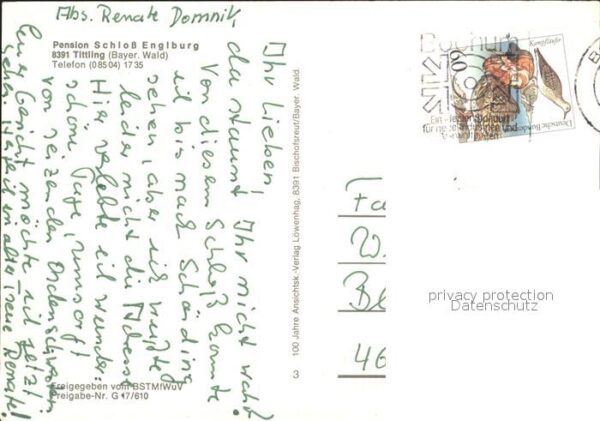 Abs. Renate Domnik
Pension Schloß Englburg
8391 Tittling (Bayer. Wald)
Telefon (08504) 1735
Ihr Lieben,
da staunt Ihr nicht wahr?
Von diesem Schloß konnte
ich bis nach Schärding
sehen, aber ich wußte
leider nicht die Adresse
Hier verlebte ich wunder-
schöne Tage, umsorgt
von reizenden Ordensschwestern
Euer Gesicht möchte ich jetzt
sehen. in alter Treue Renate!
Freigegeben vom BSTMfWuV
Freigabe-Nr. G 17/610
100 Jahre Ansichtsk.-Verlag Löwenhag, 8391 Bischofsreut/Bayer. Wald
3
Bochum
Kampfläufer
60
Deutsche Bundespost
Fa
W.
Be
46
privacy protection
Datenschutz